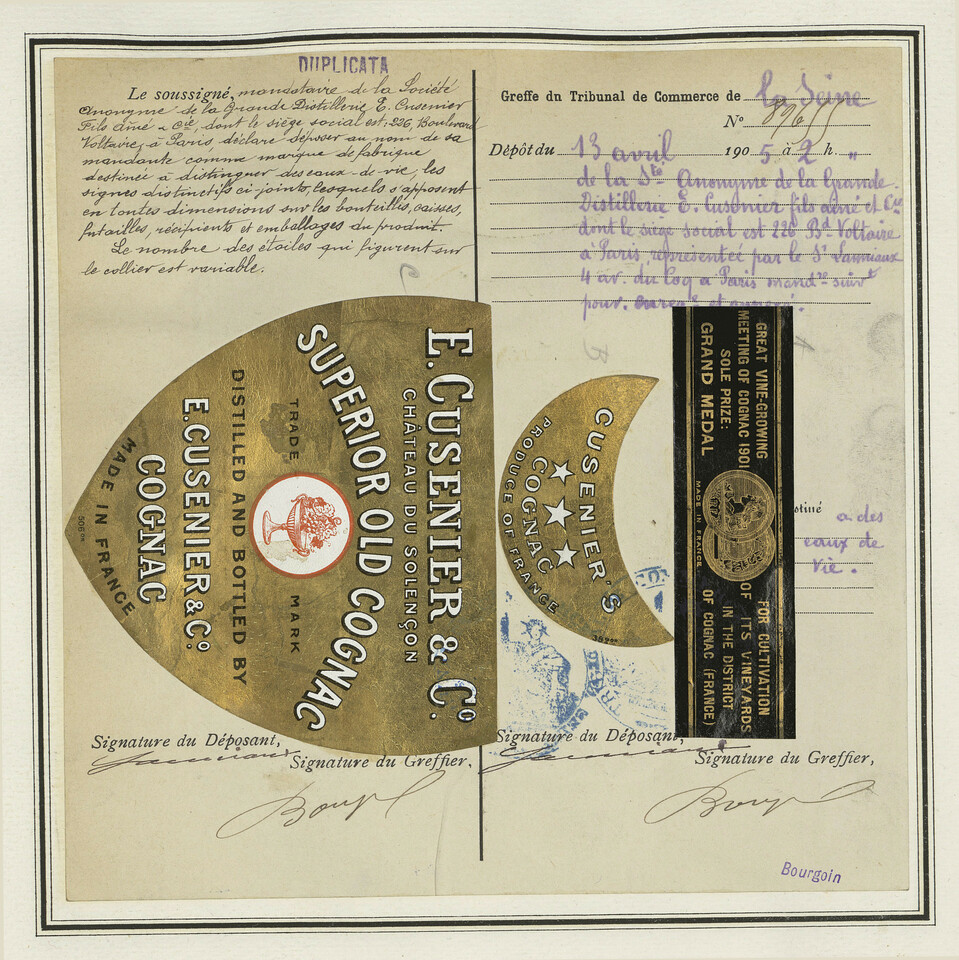 DUPLICATA
Le soussigné, mandataire de la Société
Anonyme de la Grande Distillerie E. Cusenier
Fils aîné & Cie, dont le siège social est, 226, Boulevard
Voltaire, à Paris, déclare déposer au nom de sa
mandante comme marque de fabrique
destinée à distinguer des eaux-de-vie, les
signes distinctifs ci-joints, lesquels s'apposent
en toutes dimensions sur les bouteilles, caisses,
futailles, récipients et emballages du produit.
Le nombre des étoiles qui figurent sur
le collier est variable.
Greffe du Tribunal de Commerce de la Seine
N°
Dépôt du 13 avril 1905 à 2 h. "
de la Sté Anonyme de la Grande
Distillerie E. Cusenier fils aîné et Cie
dont le siège social est 226 Bd Voltaire
à Paris, représentée par le Sr
4 av. du Coq à Paris mandre suivt
pouv. enregé et annexé.
E. CUSENIER & Co.
CHÂTEAU DU SOLENÇON
SUPERIOR OLD COGNAC
TRADE MARK
DISTILLED AND BOTTLED BY
E. CUSENIER & Co
COGNAC
MADE IN FRANCE
CUSENIER'S
COGNAC
PRODUCE OF FRANCE
GREAT VINE-GROWING
MEETING OF COGNAC 1901
SOLE PRIZE:
GRAND MEDAL
MADE IN FRANCE
FOR CULTIVATION
OF ITS VINEYARDS
IN THE DISTRICT
OF COGNAC (FRANCE)
stiné à des
eaux de
vie.
Signature du Déposant,
Signature du Greffier,
Signature du Déposant,
Signature du Greffier,
Bourgoin